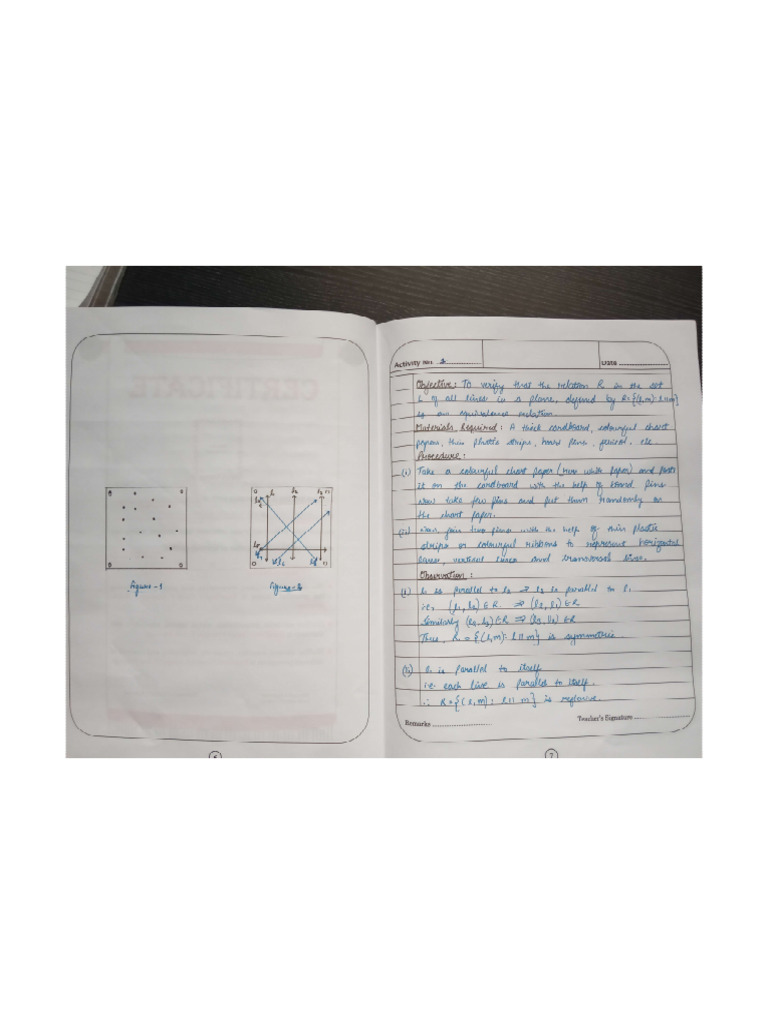 Figure - 1
Figure - 2
6
Activity No. 2
Date
Objective : To verify that the relation R in the set
L of all lines in a plane, defined by R = {(l, m) : l || m}
is an equivalence relation
Materials Required : A thick cardboard, colourful chart
papers, thin plastic strips, board pins, pencil, etc.
Procedure :
(i) Take a colourful chart paper (here white paper) and paste
it on the cardboard with the help of board pins
now take few pins and put them randomly on
the chart paper.
(ii) Now join two pins with the help of thin plastic
strips or colourful ribbons to represent horizontal
lines, vertical lines and transversal lines.
Observation :
(1) l₁ is parallel to l₂ ⇒ l₂ is parallel to l₁
i.e., (l₁, l₂) ∈ R ⇒ (l₂, l₁) ∈ R
Similarly
Thus, R = {(l, m) : l || m} is symmetric
(2) l₁ is parallel to itself
i.e. each line is parallel to itself.
∴ R = {(l, m) : l || m} is reflexive.
Remarks
Teacher's Signature
7